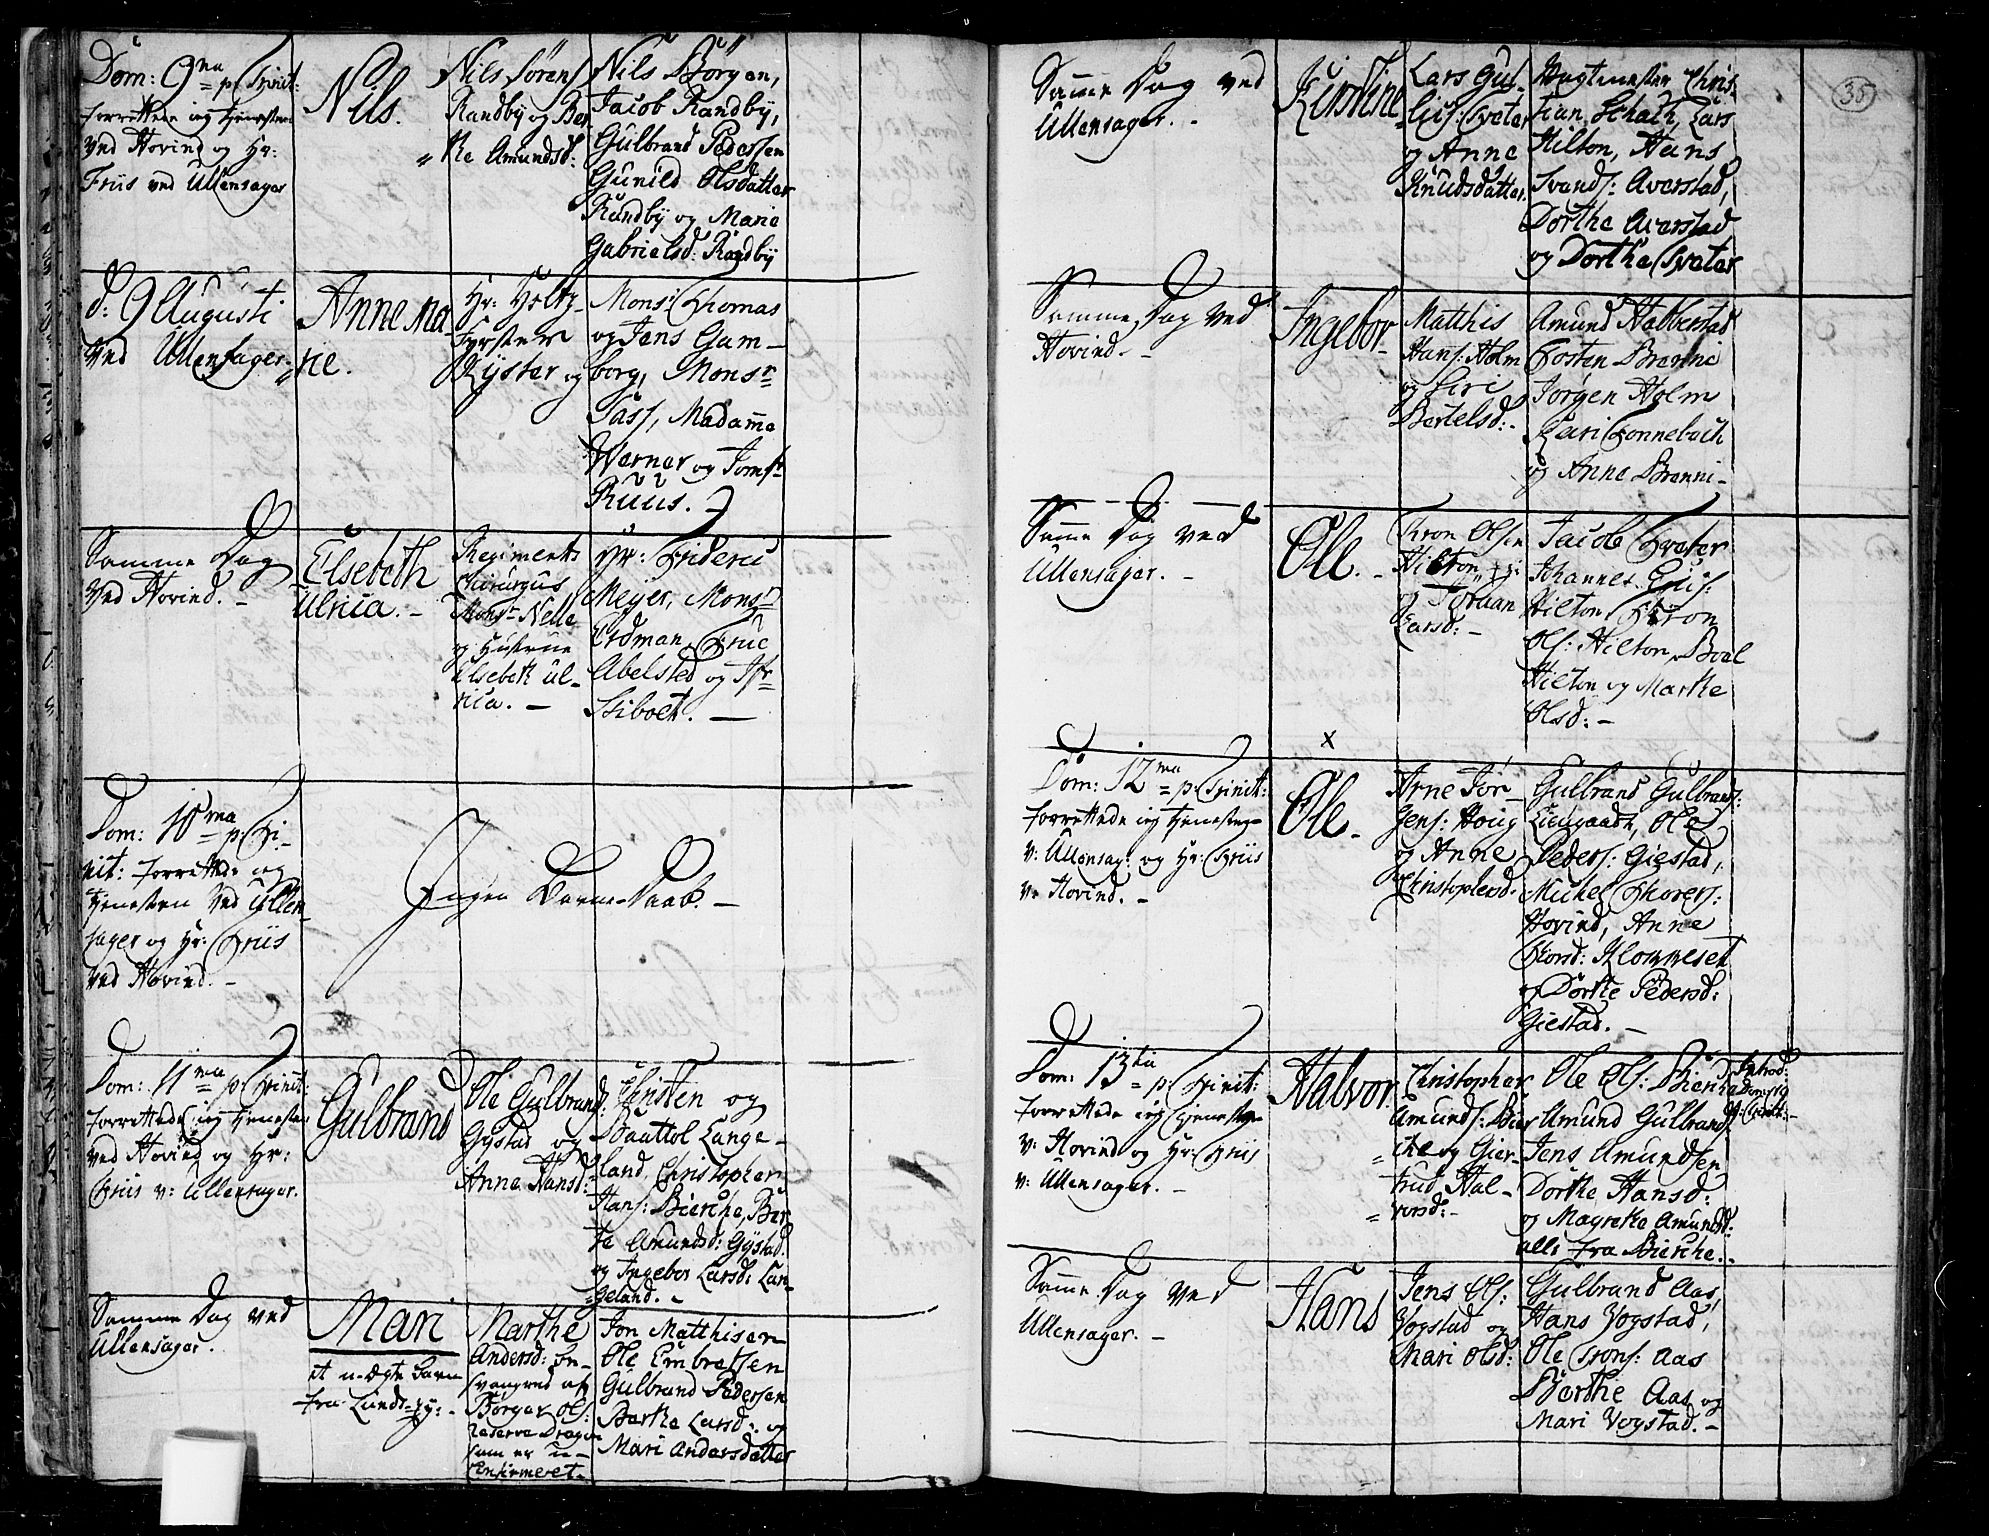 Dom: 9na p. Trinit:
forrettede ieg tienesten
ved Hovind og Hr:
Friis ved Ullensager
Nils.
Nils Sörens
Randby og Ber
the Amundsd:
Nils Borgen,
Jacob Randby,
Gulbrand Pedersen
Gunild Olsdatter
Randby og Marie
Gabrielsd: Randby
d: 9 Augusti
ved Ullensager
Anne Ma
rie.
Hr:
Ryster og
Monsr Thomas
og Jens Gam-
borg, Monsr
Fass, Madame
Werner og Jomfr
Ruus.
Samme Dag
ved Hovind.
Elsebeth
Ulrica.
Regiments
Chirurgus
Monsr Nelle
og Hustrue
Elsebeth Ul-
rica.
Hr: Frideric
Meyer, Monsr
Erdman, Frue
Abelsted og Jfr
Stiboet.
Dom: 10ma p. Tri-
nit: forrettede og
tienesten ved Ullen-
sager og Hr: Friis
ved Hovind.
Ingen Barne-Daab.
Dom: 11ma p. Trinit:
forrettede ieg tienesten
ved Hovind og Hr:
Friis v: Ullensager.
Gulbrand
Ole Gulbrands:
Gystad og
Anne Hansd:
Gunsten og
Baattol Lange-
land, Christopher
Hans: Bierche, Ber
te Amundsd: Gystad.
og Ingebor Larsd: Lan
geland.
Samme Dag ved
Ullensager.
Mari
et u-ægte barn
fra
Marthe
Andersd: be-
svangred af
Borger Ols:
Reserve Dragon
som er u-
confirmeret.
Jon Matthisen
Ole Embretsen
Gulbrand Pedersen
Berthe Larsd: og
Mari Andersdatter
35
Samme Dag ved
Ullensager.
Kirstine
Lars Gul-
Tveter
og Anne
Knudsdatter.
Vagtmester Chris-
tian Schach, Lars
Hilton, Hans
Svends: Averstad,
Dorthe Averstad
og Dorthe Tveter
Samme Dag ved
Hovind.
Ingebor
Matthis
Hans: Holm
og Siri
Bertelsd:
Amund Habberstad
Tosten Brenni
Jörgen Holm
Kari Tonnebach
og Anne Brenni
Samme Dag ved
Ullensager.
Ole.
Tron Olsen
Hilton
og Joraan
Larsd:
Jacob Tveter
Johannes
Hilton Thron
Ols: Hilton, Boel
Hilton og Marthe
Olsd:
x
Dom: 12ma p. Trinit:
forrettede ieg tienesten
v: Ullensag: og Hr: Friis
v. Hovind.
Ole.
Arne Jör-
gens: Houg
og Anne
Christophersd:
Gulbrand Gulbrands:
Ole
Peders: Giestad,
Michel Thorers:
Hovind, Anne
Thorsd: Klommeset
og Dorthe Pedersd:
Giestad.
Dom: 13tia p. Trinit:
forrettede ieg Tienesten
v: Hovind og Hr: Friis
v: Ullensager.
Halvor
Christopher
Amunds: Bier
che og Gier-
trud Hal-
vorsd:
Ole Ols: Bierche
Amund Gulbrands:
Jens Amundsen
Dorthe Hansd:
og Magrethe Amundsd:
alle fra Bierche.
Introd:
Dom: 19
p: Trinit:
Samme Dag ved
Ullensager.
Hans
Jens Ols:
Vogstad og
Mari Olsd:
Gulbrand Aas,
Hans Vogstad,
Ole Trons: Aas
Berthe Aas og
Mari Vogstad.